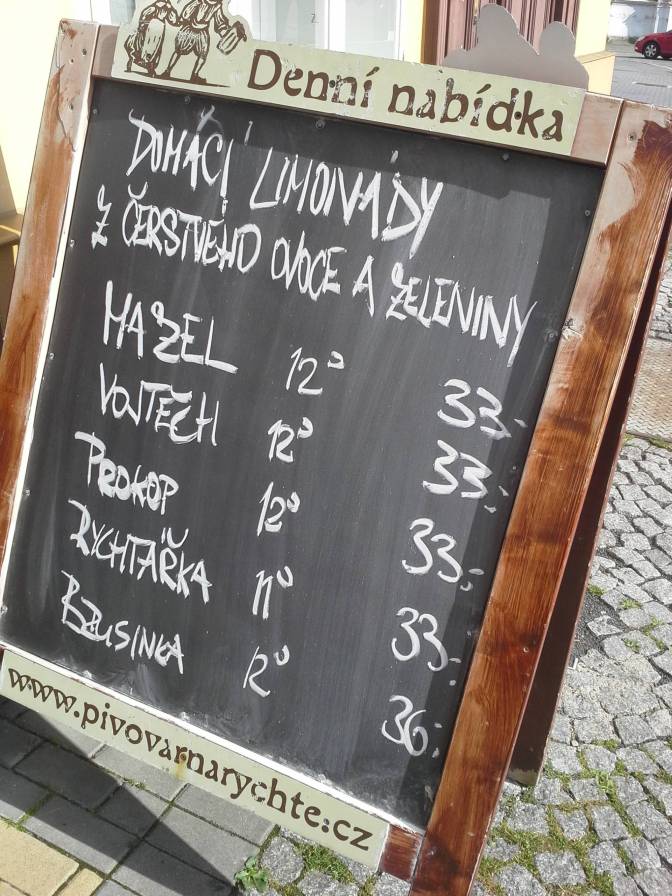 Denní nabídka
DOMÁCÍ LIMONÁDY
Z ČERSTVÉHO OVOCE A ZELENINY
MAZEL 12° 33,-
VOJTĚCH 12° 33,-
PROKOP 12° 33,-
RYCHTÁŘKA 11° 33,-
BZUSINKA 12° 36,-
www.pivovarnarychte.cz